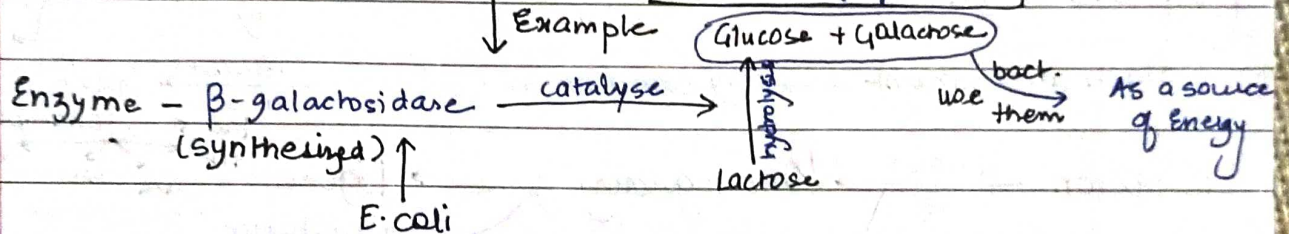 Example
Glucose + Galactose
Enzyme – β-galactosidase catalyse
(synthesized)
E. coli
hydrolysis
Lactose.
bact.
use them
As a source
of Energy